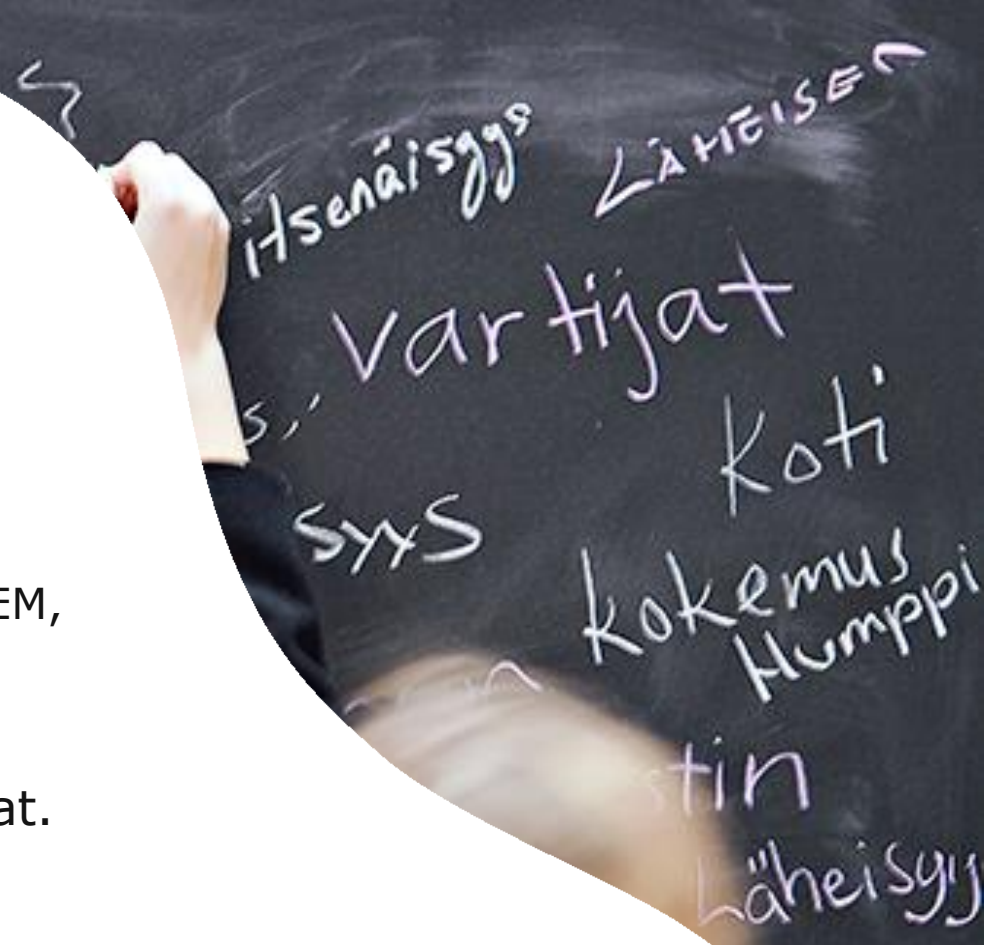 itsenäisyys
LÄHEISEN
vartijat
Koti
syys
kokemus
Humppi
EM,
tin
at.
Läheisyy